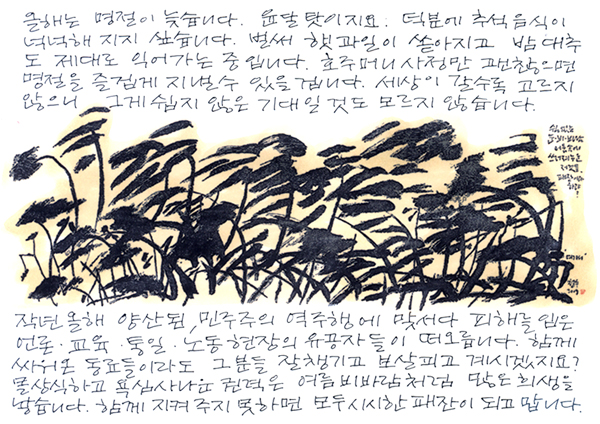 올해는 명절이 늦습니다. 윤달 탓이지요. 덕분에 추석 음식이
넉넉해 지지 싶습니다. 벌써 햇과일이 쏟아지고 밤 대추
도 제대로 익어가는 중 입니다. 호주머니 사정만 괜찮으면
명절을 즐겁게 지낼 수 있을겁니다. 세상이 갈수록 고르지
않으니 그게 쉽지 않은 기대일 것도 모르지 않습니다.
작년 올해 양산된, 민주주의 역주행에 맞서다 피해를 입은
언론·교육·통일·노동현장의 유공자들이 떠오릅니다. 함께
싸워온 동료들이라도 그분들 잘 챙기고 보살피고 계시겠지요?
몰상식하고 욕심사나운 권력은 여름 비바람처럼 많은 희생을
낳습니다. 함께 지켜주지 못하면 모두 시시한 패잔이 되고 맙니다.